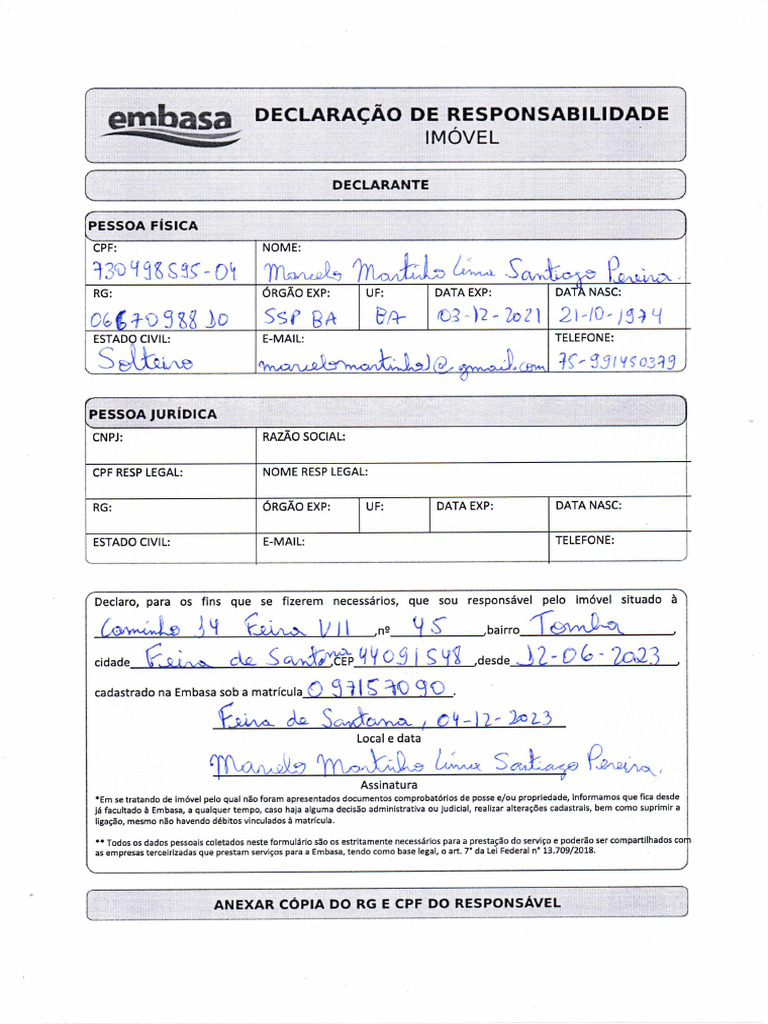 embasa
DECLARAÇÃO DE RESPONSABILIDADE
IMÓVEL
DECLARANTE
PESSOA FÍSICA
CPF: NOME:
730498595-04 Marcelo Martinho Lima Santiago Pereira.
RG: ÓRGÃO EXP: UF: DATA EXP: DATA NASC:
0667098810 SSP BA BA 03-12-2021 21-10-1974
ESTADO CIVIL: E-MAIL: TELEFONE:
Solteiro marcelomartinho1@gmail.com 75-991450379
PESSOA JURÍDICA
CNPJ: RAZÃO SOCIAL:
CPF RESP LEGAL: NOME RESP LEGAL:
RG: ÓRGÃO EXP: UF: DATA EXP: DATA NASC:
ESTADO CIVIL: E-MAIL: TELEFONE:
Declaro, para os fins que se fizerem necessários, que sou responsável pelo imóvel situado à
Caminho 14 Feira VII ,nº 45 ,bairro Tomba ,
cidade Feira de Santana ,CEP 44091548 ,desde 12-06-2023 ,
cadastrado na Embasa sob a matrícula 097157090 .
Feira de Santana, 04-12-2023
Local e data
Marcelo Martinho Lima Santiago Pereira.
Assinatura
*Em se tratando de imóvel pelo qual não foram apresentados documentos comprobatórios de posse e/ou propriedade, informamos que fica desde
já facultado à Embasa, a qualquer tempo, caso haja alguma decisão administrativa ou judicial, realizar alterações cadastrais, bem como suprimir a
ligação, mesmo não havendo débitos vinculados à matrícula.
** Todos os dados pessoais coletados neste formulário são os estritamente necessários para a prestação do serviço e poderão ser compartilhados com
as empresas terceirizadas que prestam serviços para a Embasa, tendo como base legal, o art. 7° da Lei Federal n° 13.709/2018.
ANEXAR CÓPIA DO RG E CPF DO RESPONSÁVEL